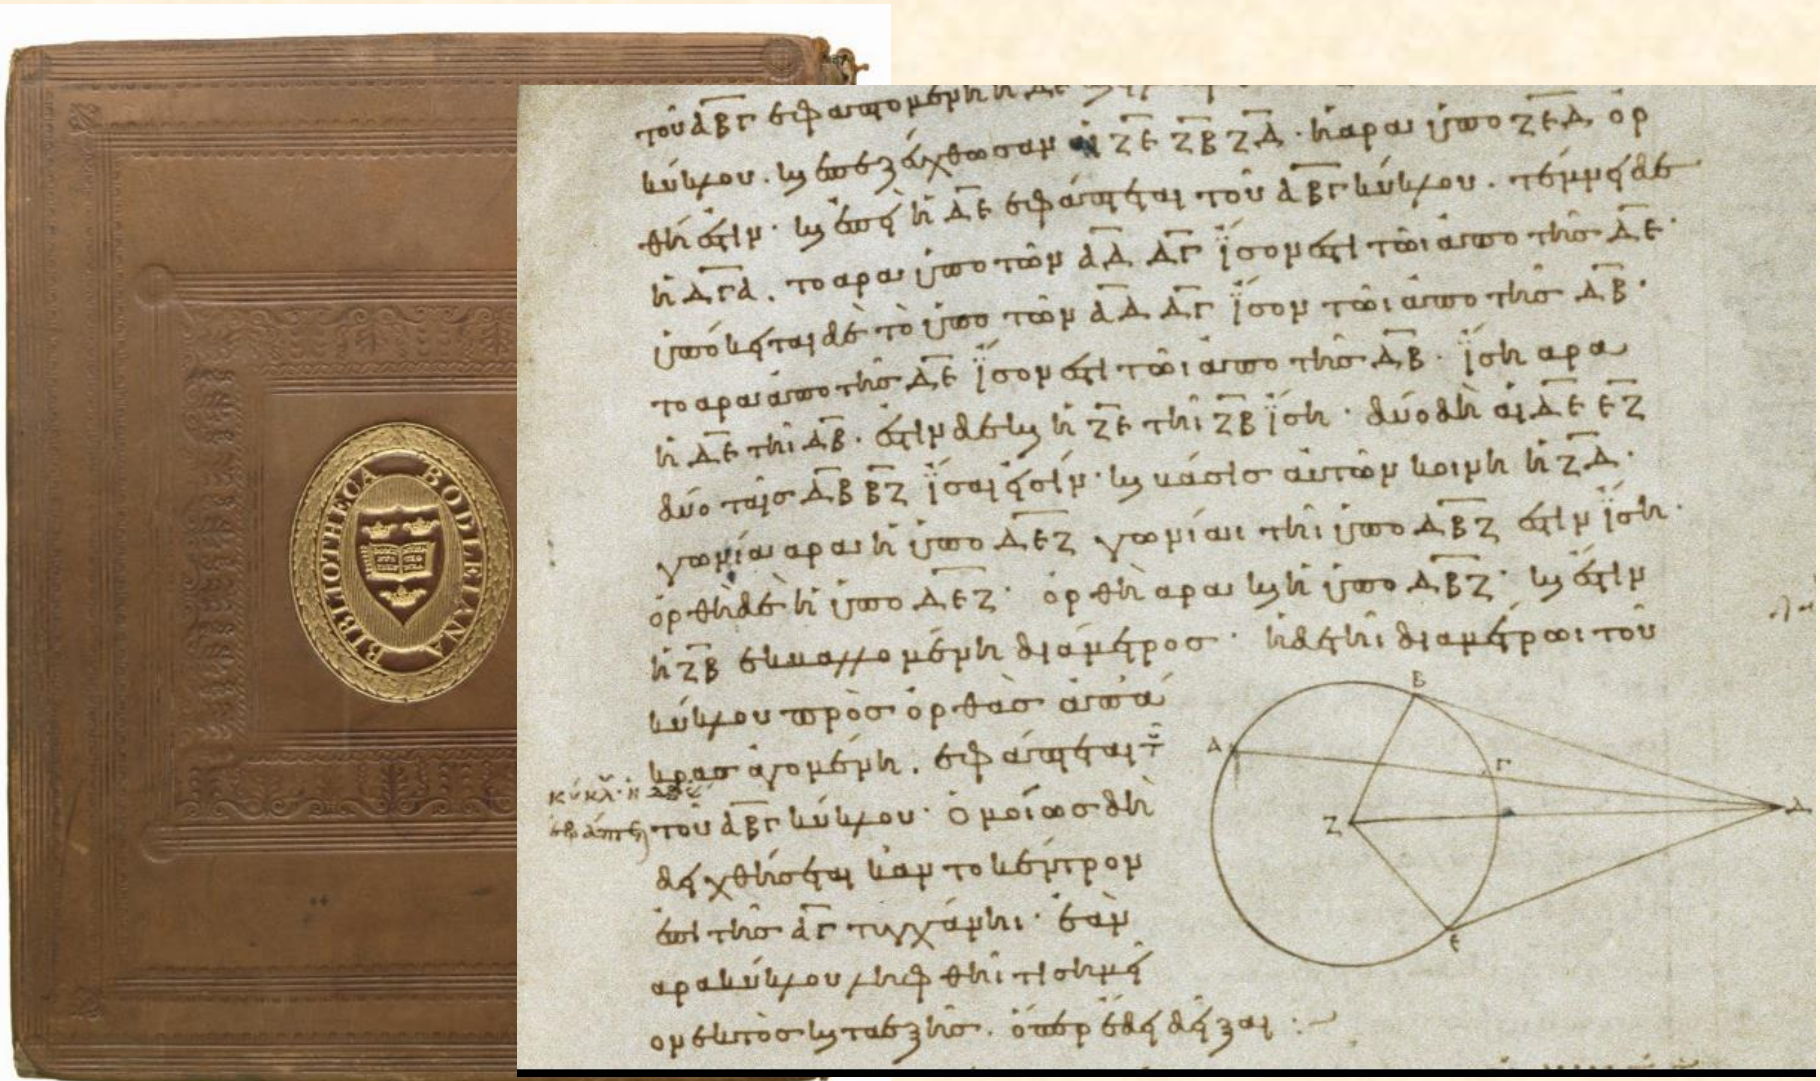 BIBLIOTHECA BODLEIANA
τοῦ ΑΒΓ ἐφαπτομένη ἡ ΔΕ
κύκλου. καὶ ἐπεζεύχθωσαν αἱ ΖΕ ΖΒ ΖΔ· ἡ ἄρα ὑπο ΖΕΔ ὀρ
θή ἐστιν· καὶ ἐπεὶ ἡ ΔΕ ἐφάπτεται τοῦ ΑΒΓ κύκλου. τέμνει δὲ
ἡ ΔΓΑ. το ἄρα ὑπο τῶν ΑΔ ΔΓ ἴσον ἐστὶ τῶι ἀπο τῆς ΔΕ·
ὑπόκειται δὲ τὸ ὑπο τῶν ΑΔ ΔΓ ἴσον τῶι ἀπο τῆς ΔΒ·
το ἄρα ἀπο τῆς ΔΕ ἴσον ἐστὶ τῶι ἀπο τῆς ΔΒ· ἴση ἄρα
ἡ ΔΕ τῆι ΔΒ· ἐστὶν δὲ καὶ ἡ ΖΕ τῆι ΖΒ ἴση· δύο δὴ αἱ ΔΕ ΕΖ
δύο ταῖς ΔΒ ΒΖ ἴσαι εἰσίν· καὶ βάσις αὐτῶν κοινὴ ἡ ΖΔ·
γωνία ἄρα ἡ ὑπο ΔΕΖ γωνίαι τῆι ὑπο ΔΒΖ ἐστὶν ἴση·
ὀρθὴ δὲ ἡ ὑπο ΔΕΖ· ὀρθὴ ἄρα καὶ ἡ ὑπο ΔΒΖ· καὶ ἐστὶν
ἡ ΖΒ ἐκβαλλομένη διάμετρος· ἡ δὲ τῆι διαμέτρωι τοῦ
κύκλου πρὸς ὀρθὰς ἀπ' ἄ
κρας ἀγομένη. ἐφάπτεται τ
τοῦ ΑΒΓ κύκλου· ὁμοίως δὴ
δειχθήσεται κἂν το κέντρον
ἐπὶ τῆς ΑΓ τυγχάνηι· ἐὰν
ἄρα κύκλου ληφθῆι τι σημεῖ
ον ἐκτὸς καὶ τὰ ἑξῆς. ὅπερ ἔδει δεῖξαι :~
Β
Α
Γ
Ζ
Δ
Ε